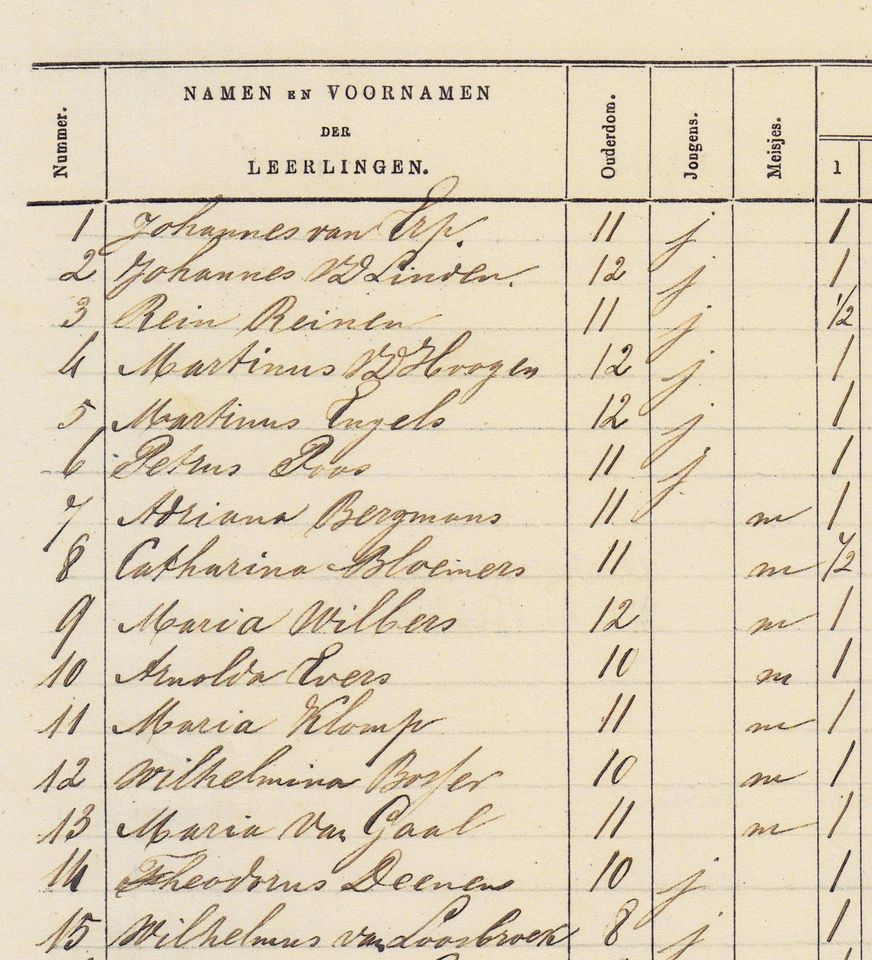 Nummer. NAMEN EN VOORNAMEN DER LEERLINGEN. Ouderdom. Jongens. Meisjes. 1
1 Johannes van Erp. 11 j 1
2 Johannes VD Linden. 12 j 1
3 Rein Reinen 11 j 1/2
4 Martinus VD Hoogen 12 j 1
5 Martinus Engels 12 j 1
6 Petrus Poos 11 j 1
7 Adriana Bergmans 11 m 1
8 Catharina Bloemers 11 m 1/2
9 Maria Wilbers 12 m 1
10 Arnolda Evers 10 m 1
11 Maria Klomp 11 m 1
12 Wilhelmina Bosser 10 m 1
13 Maria Van Gaal 11 m 1
14 Theodorus Deenen 10 j 1
15 Wilhelmus van Loosbroek 8 j 1